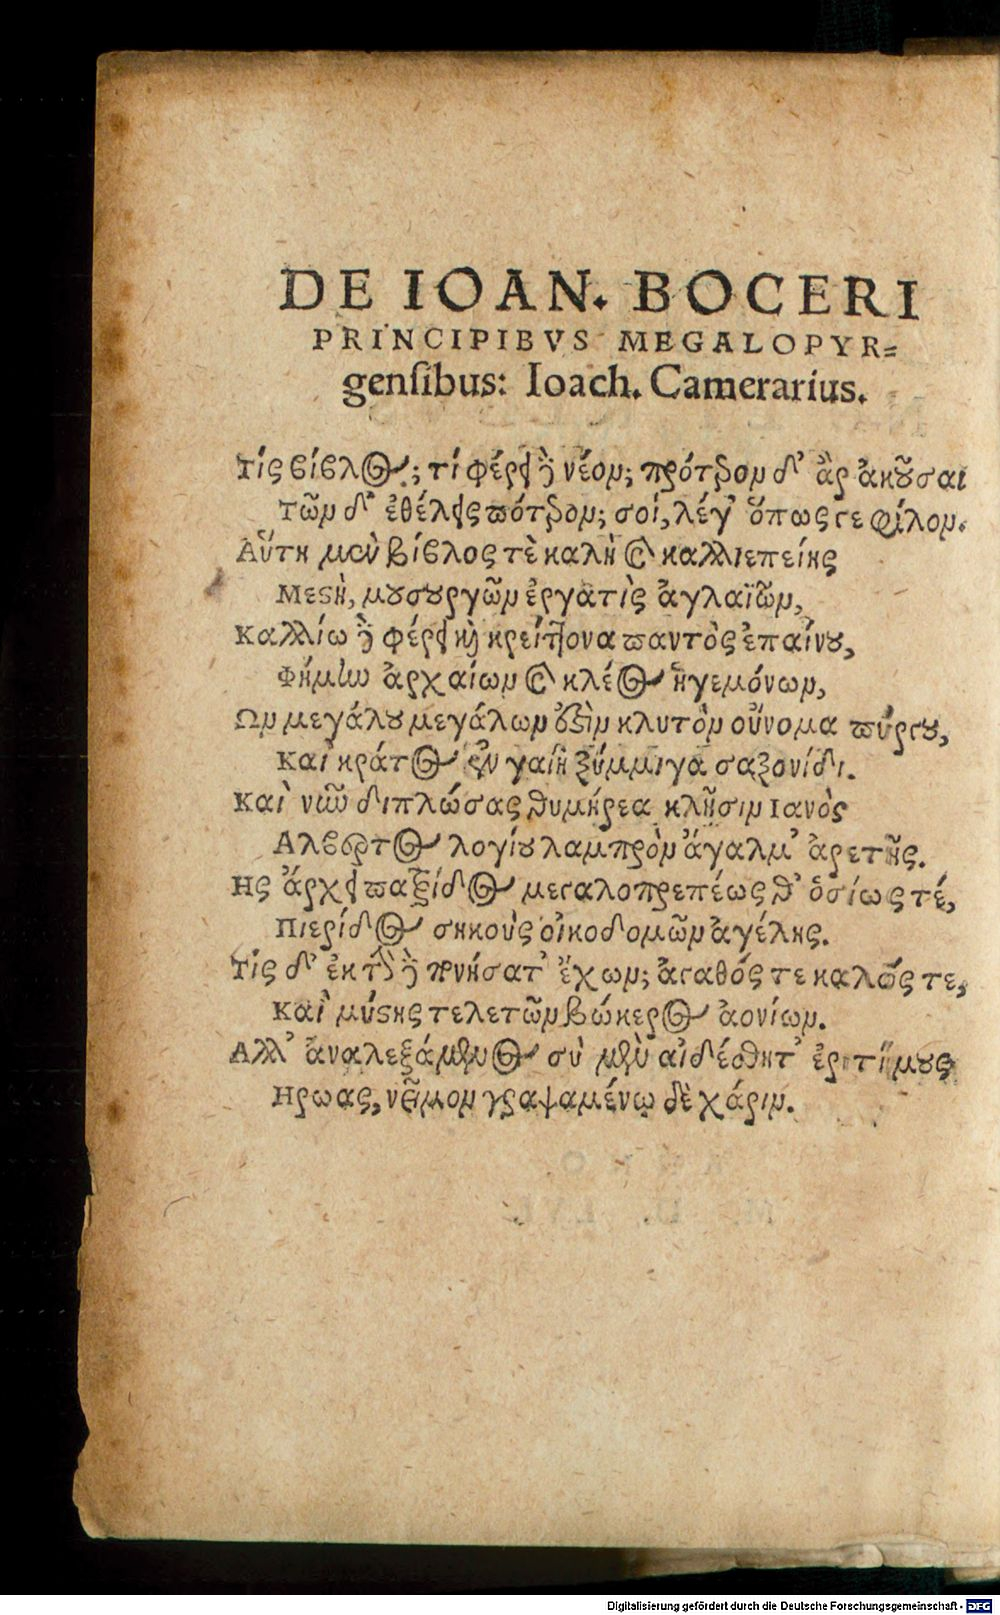 DE IOAN. BOCERI
PRINCIPIBVS MEGALOPYR=
gensibus: Ioach. Camerarius.
Τίς βίβλος; τί φέρει δὲ νέον; πρότερον δ' ἂρ ἀκοῦσαι
Τῶν δ' ἐθέλεις πότερον; σοὶ, λέγ' ὅπως γε φίλον.
Αὕτη μὲν βίβλος τὲ καλὴ καὶ καλλιεπείης
Μεστὴ, μουσουργῶν ἐργάτις ἀγλαϊῶν,
Καλλίω δὲ φέρει καὶ κρείττονα παντὸς ἐπαίνου,
Φήμην ἀρχαίων καὶ κλέος ἡγεμόνων,
Ων μεγάλου μεγάλων ἐστὶν κλυτὸν οὔνομα πύργου,
Καὶ κράτος ἐν γαίῃ ξύμμιγα σαξονίδι.
Καὶ νῦν διπλώσας θυμήρεα κλῆσιν Ιανὸς
Αλβερτος λογίου λαμπρὸν ἄγαλμ' ἀρετῆς.
Ης ἄρχει παξίδος μεγαλοπρεπέως θ' ὁσίως τέ,
Πιερίδος σηκοὺς οἰκοδομῶν ἀγέλης.
Τίς δ' δὲ ἔχων; ἀγαθός τε καλός τε,
Καὶ μύστης τελετῶν Βώκερος ἀονίων.
Αλλ' ἀναλεξάμενος σὺ μὲν αἰδέσθητ' ἐριτίμους
Ηρωας, νεῖμον γραψαμένῳ δὲ χάριν.
Digitalisierung gefördert durch die Deutsche Forschungsgemeinschaft - DFG